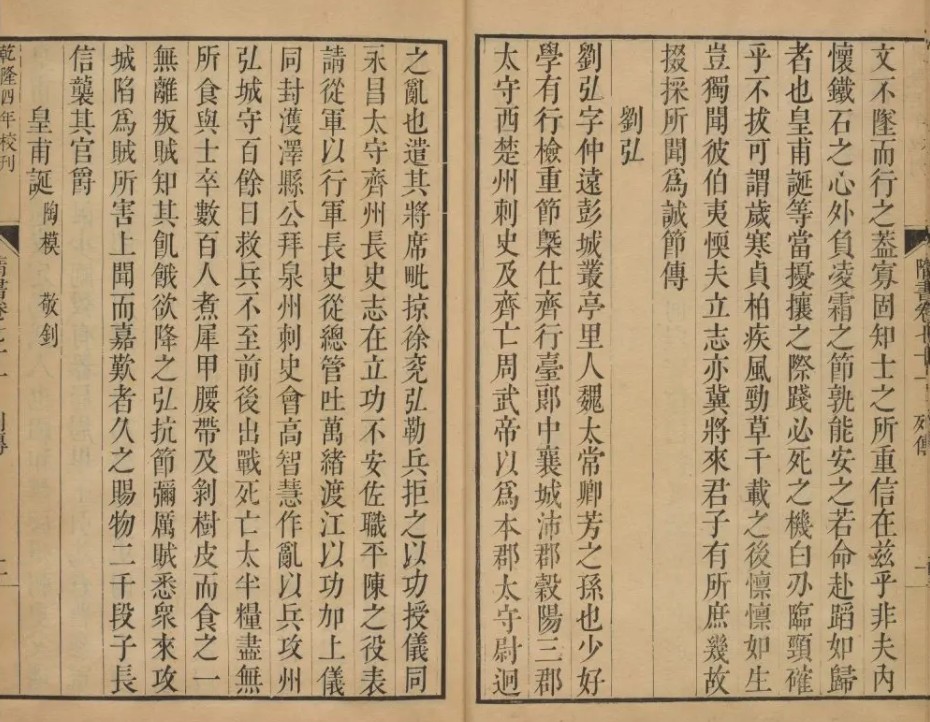 文不墜而行之蓋寡固知士之所重信在兹乎非夫内
懷鐵石之心外負凌霜之節孰能安之若命赴蹈如歸
者也皇甫誕等當擾攘之際踐必死之機白刃臨頸確
乎不拔可謂歲寒貞柏疾風勁草千載之後懍懍如生
豈獨聞彼伯夷懦夫立志亦冀將來君子有所庶幾故
掇採所聞爲誠節傳
劉弘
劉弘字仲遠彭城叢亭里人魏太常卿芳之孫也少好
學有行檢重節槩仕齊行臺郎中襄城沛郡穀陽三郡
太守西楚州刺史及齊亡周武帝以爲本郡太守尉迥
之亂也遣其將席毗掠徐兗弘勒兵拒之以功授儀同
永昌太守齊州長史志在立功不安佐職平陳之役表
請從軍以行軍長史從總管吐萬緒渡江以功加上儀
同封濩澤縣公拜泉州刺史會高智慧作亂以兵攻州
弘城守百餘日救兵不至前後出戰死亡太半糧盡無
所食與士卒數百人煮犀甲腰帶及剝樹皮而食之一
無離叛賊知其飢餓欲降之弘抗節彌厲賊悉衆來攻
城陷爲賊所害上聞而嘉歎者久之賜物二千段子長
信襲其官爵
皇甫誕 陶模 敬釗
乾隆四年校刊